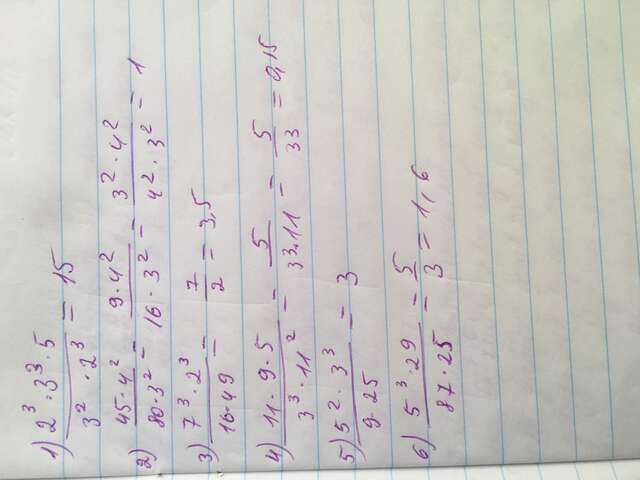 1) (2³ · 3³ · 5)/(3² · 2³) = 15
2) (45·4²)/(80·3²) = (9·4²)/(16·3²) = (3²·4²)/(4²·3²) = 1
3) (7³·2³)/(16·49) = 7/2 = 3,5
4) (11·9·5)/(3³·11²) = 5/(3³·11) = 5/33 = 0,15
5) (5²·3³)/(9·25) = 3
6) (5³·29)/(87·25) = 5/3 = 1,6